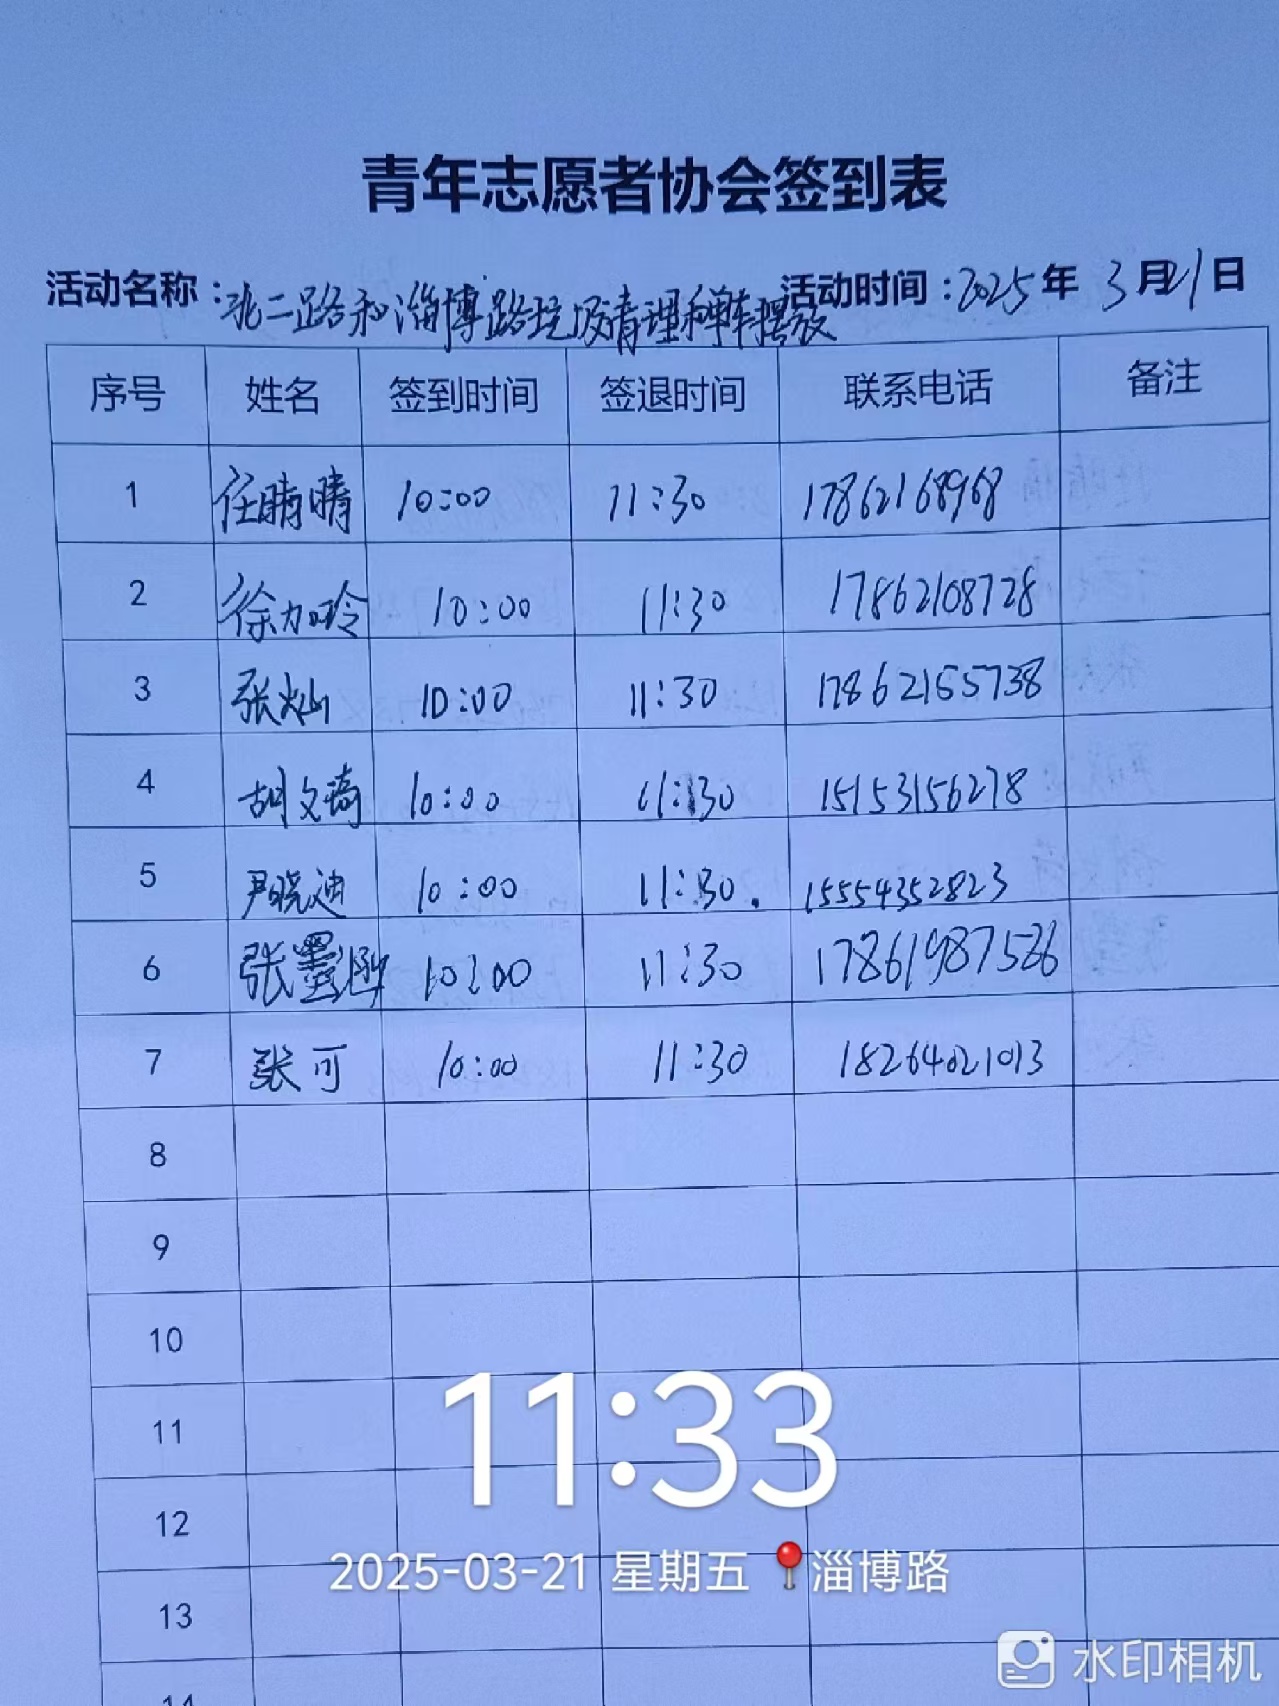 青年志愿者协会签到表
活动名称：北二路和淄博路垃圾清理和单车摆放 活动时间：2025年3月21日
序号 姓名 签到时间 签退时间 联系电话 备注
1 任晴晴 10:00 11:30 17862168968
2 徐加玲 10:00 11:30 17862108728
3 张灿 10:00 11:30 17862155738
4 胡文琦 10:00 11:30 15153156278
5 尹晓迪 10:00 11:30. 15554352823
6 张墨涵 10:00 11:30 17861987526
7 张可 10:00 11:30 18264021013
8
9
10
11
12
13
14
11:33
2025-03-21 星期五 淄博路
水印相机